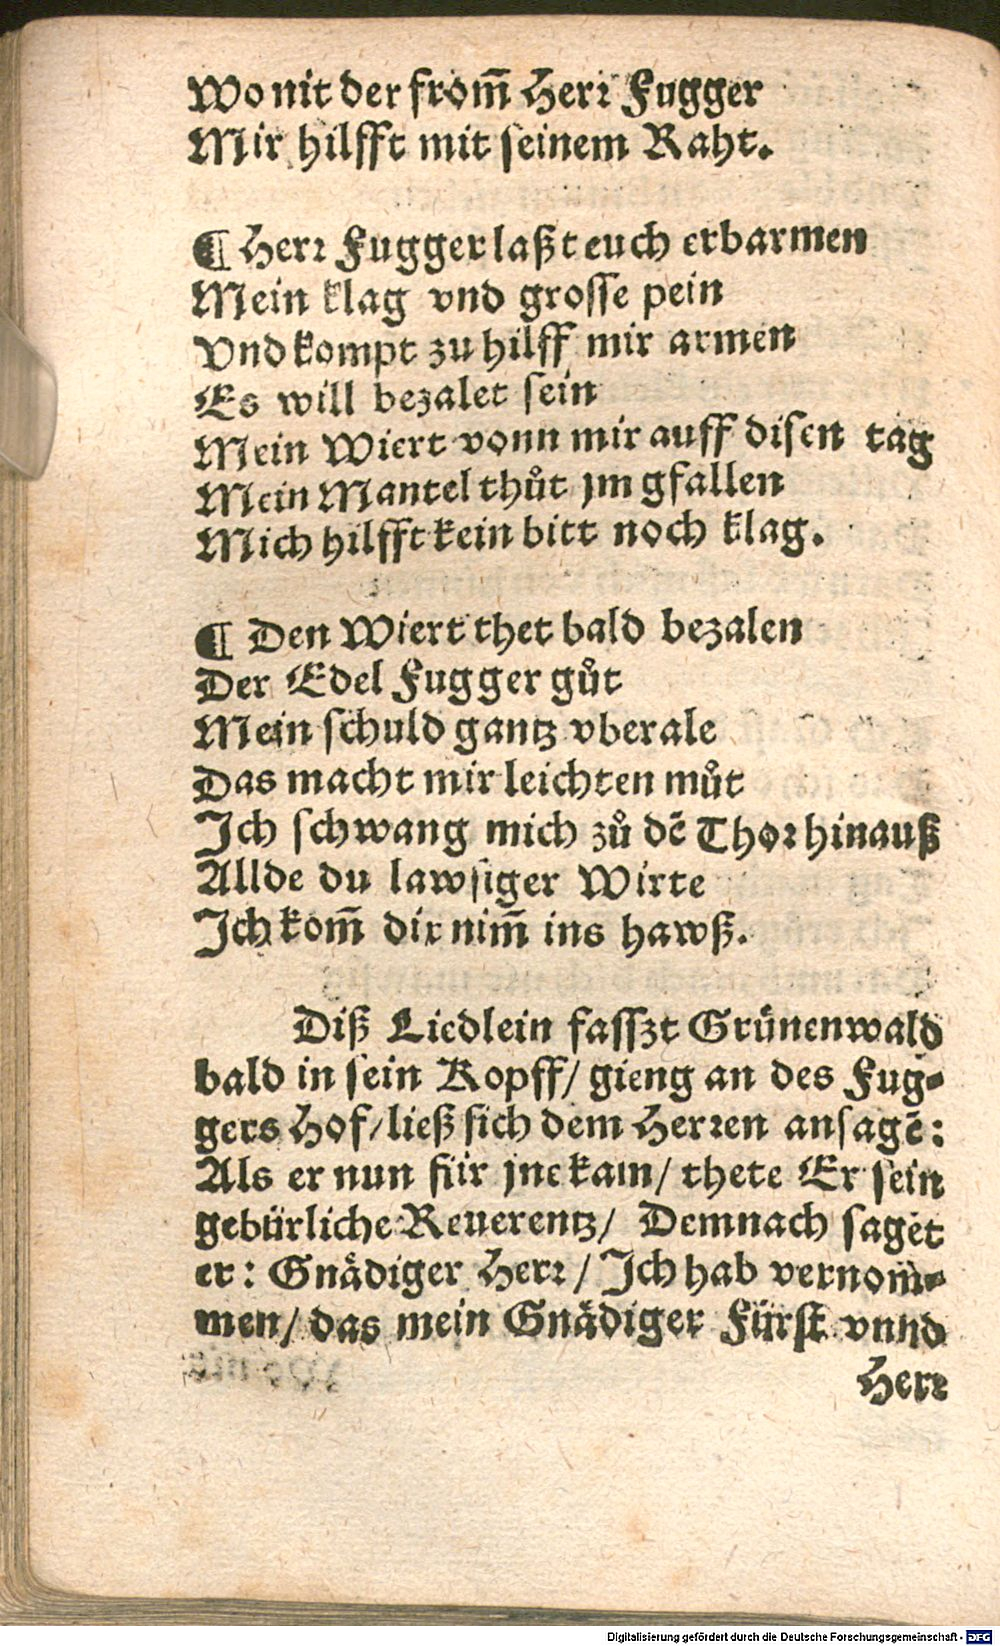 Wo nit der from̄ Herꝛ Fugger
Mir hilfft mit seinem Raht.
¶ Herꝛ Fugger laßt euch erbarmen
Mein klag vnd grosse pein
Vnd kompt zu hilff mir armen
Es will bezalet sein
Mein Wiert vonn mir auff disen tag
Mein Mantel thůt jm gfallen
Mich hilfft kein bitt noch klag.
¶ Den Wiert thet bald bezalen
Der Edel Fugger gůt
Mein schuld gantz vberale
Das macht mir leichten můt
Ich schwang mich zů dē Thoꝛ hinauß
Allde du lawsiger Wirte
Ich kom̄ dir nim̄ ins hawß.
Diß Liedlein fasszt Grünenwald
bald in sein Kopff/ gieng an des Fug-
gers Hof/ ließ sich dem Herꝛen ansagē:
Als er nun für jne kam/ thete Er sein
gebürliche Reuerentz/ Demnach saget
er: Gnädiger Herꝛ/ Ich hab vernom-
men/ das mein Gnädiger Fürst vnnd
Herꝛ
Digitalisierung gefördert durch die Deutsche Forschungsgemeinschaft - DFG